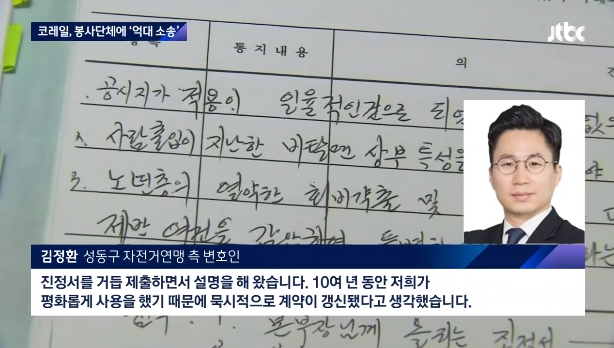 코레일, 봉사단체에 '억대 소송'
jtbc
통지내용
의
1. 공시지가 적용의 일률적인것으로 되
2. 사람출입이 지난한 비탈면 상부 특성을
3. 노면층의 열악한 및
제반 여건을
본부장님께 올리는 진정서
김정환 성동구 자전거연맹 측 변호인
진정서를 거듭 제출하면서 설명을 해 왔습니다. 10여 년 동안 저희가
평화롭게 사용을 했기 때문에 묵시적으로 계약이 갱신됐다고 생각했습니다.